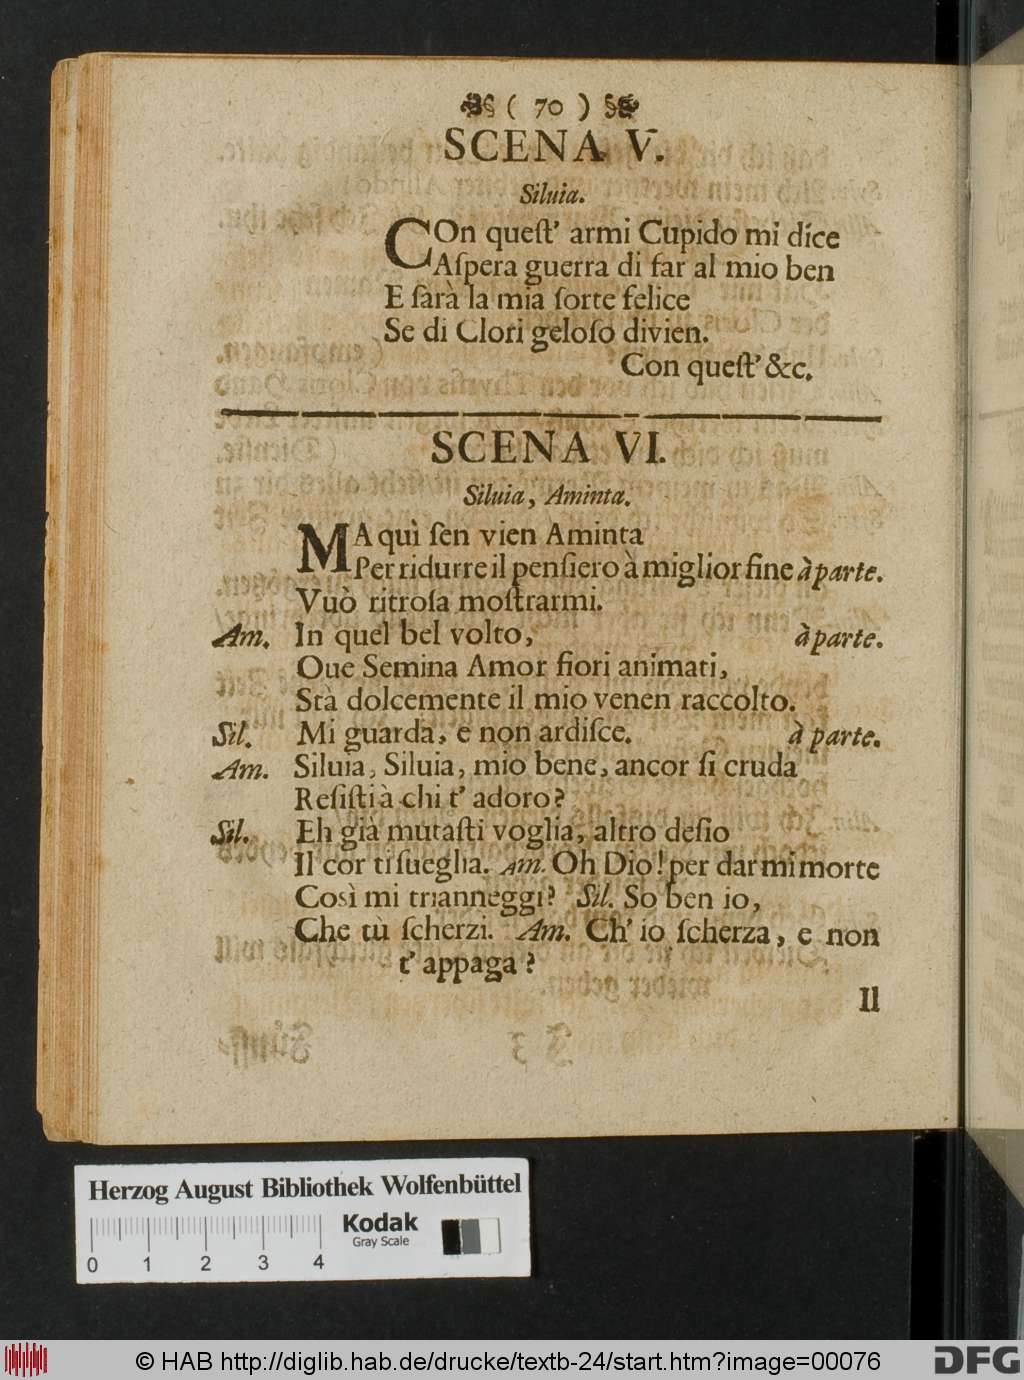 ( 70 )
SCENA V.
Siluia.
COn queſt' armi Cupido mi dice
Aſpera guerra di far al mio ben
E ſarà la mia ſorte felice
Se di Clori geloſo divien.
Con queſt' &c.
SCENA VI.
Siluia, Aminta.
MA quì ſen vien Aminta
Per ridurre il penſiero à miglior fine à parte.
Vuò ritroſa moſtrarmi.
Am. In quel bel volto, à parte.
Oue Semina Amor fiori animati,
Stà dolcemente il mio venen raccolto.
Sil. Mi guarda, e non ardiſce. à parte.
Am. Siluia, Siluia, mio bene, ancor ſi cruda
Reſiſti à chi t' adoro?
Sil. Eh già mutaſti voglia, altro deſio
Il cor ti ſueglia. Am. Oh Dio! per dar mi morte
Così mi trianneggi? Sil. So ben io,
Che tù ſcherzi. Am. Ch' io ſcherza, e non
t' appaga?
Il
Herzog August Bibliothek Wolfenbüttel
Kodak
Gray Scale
0 1 2 3 4
© HAB http://diglib.hab.de/drucke/textb-24/start.htm?image=00076
DFG